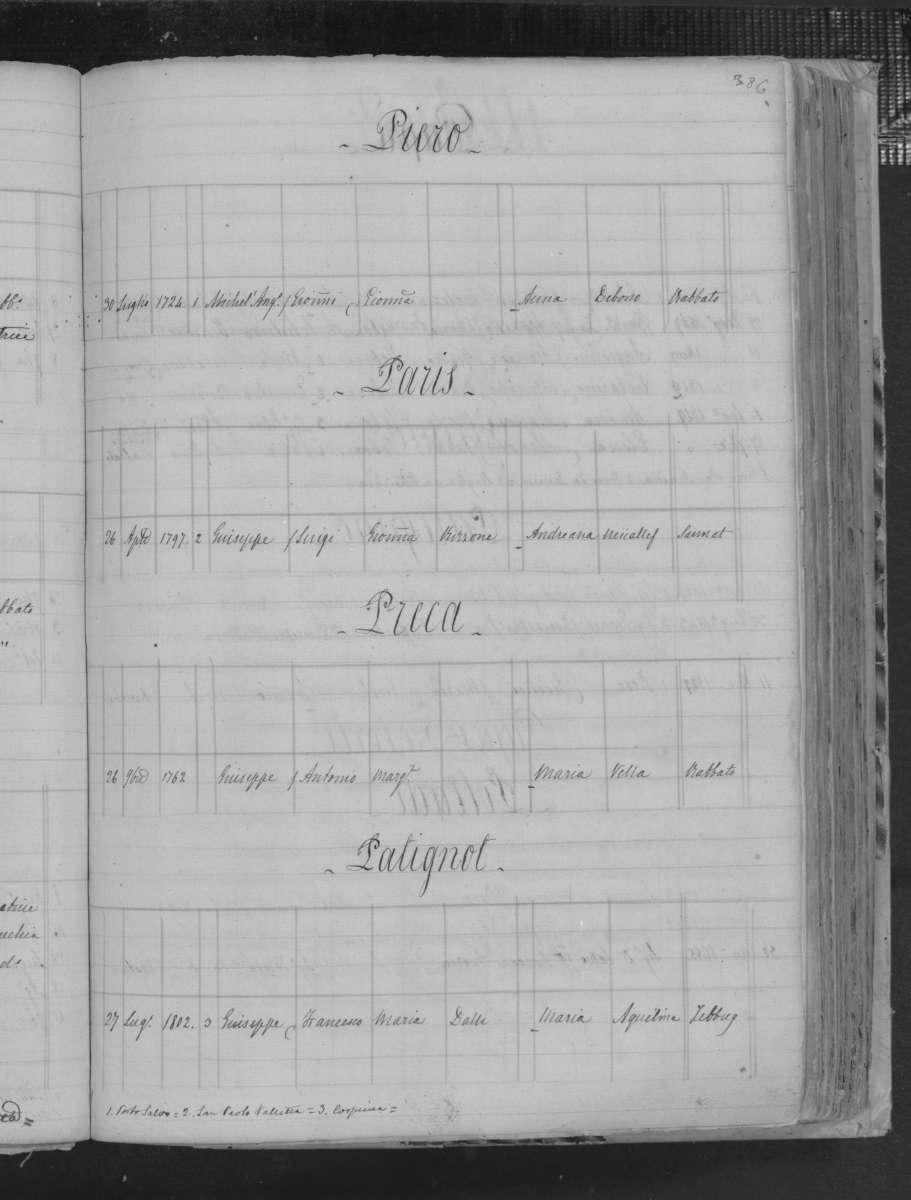 386
- Piero -
30 Luglio 1724. 1 Michel'Ang.o f Gioñni Gioñna - Anna Debono Rabbato
- Paris -
26 Aple 1797. 2 Giuseppe f Luigi Gioñna - Andreana Sannat
- Preca -
26 9bre 1762 Giuseppe f Antonio Marg.ta - Maria Vella Rabbato
- Patignot -
27 Lug.o 1802. 3 Giuseppe f Francesco Maria Dalli - Maria Aquilina Zebbug
1. Porto Salvo = 2. San Paolo Valletta = 3. Cospicua =
bbato